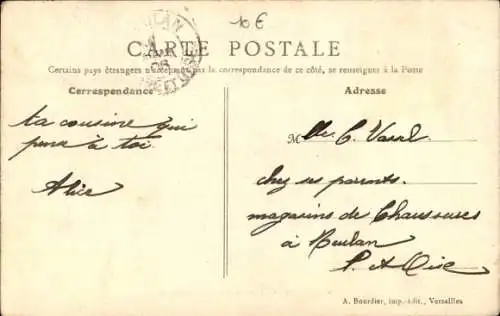 10 €
CARTE POSTALE
Certains pays étrangers n'acceptent pas la correspondance de ce côté, se renseigner à la Poste
Correspondance
Adresse
ta cousine qui
pense à toi
Alice
Mlle C. Vassal
chez ses parents.
magasins de Chaussures
à Meulan
S. et Oise
A. Bourdier, imp.-édit., Versailles